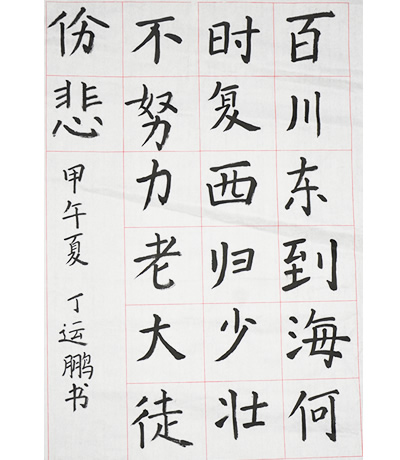 百川东到海何
时复西归少壮
不努力老大徒
伤悲
甲午夏 丁运鹏书